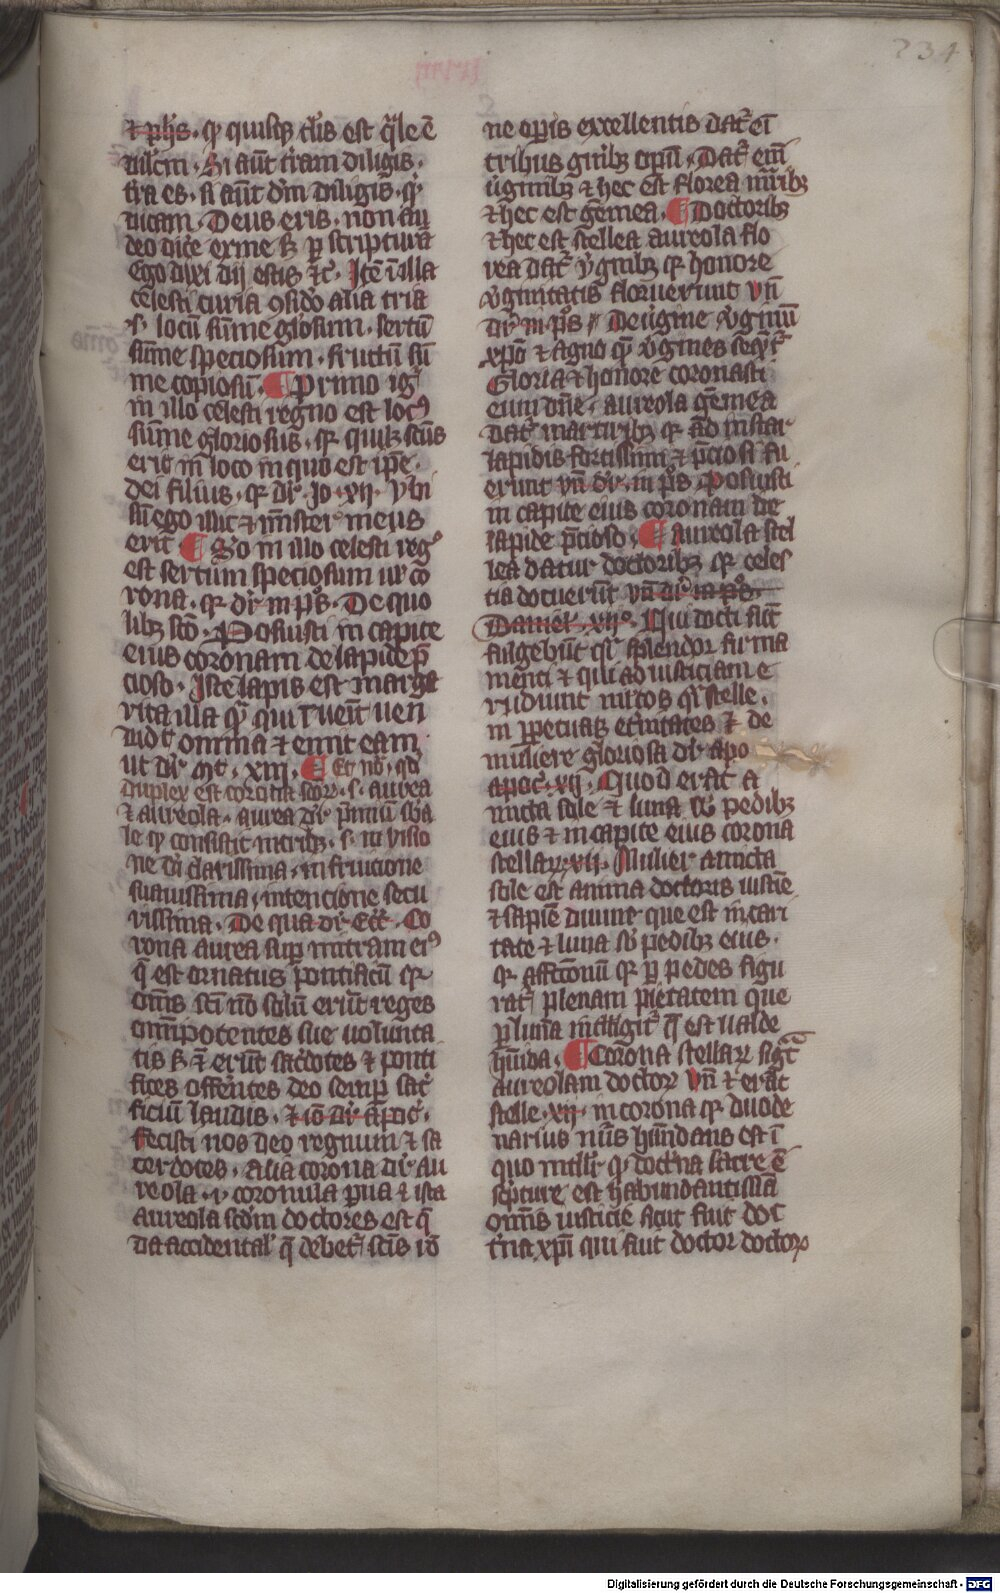 234
⁊ ph̄s . qꝫ quilibꝫ tal̄is est q̄lē ē
dil̄c̄m . Si aūt t̄ram diligis .
t̄ra es . si aūt dm̄ diligis . qͥd
dicam . Deus eris . non au
deo dic̄e ex me sꝫ ꝑ scripturā
Ego dixi dij estis ⁊c̄ . Itē ī illa
celesti curia ꝯsido alia tria
.s. locū sūme gl̄osum . sertū
sūme speciosum . fructū sū
me copiosū . ¶ Primo igͥ
in illo celesti regno est locꝰ
sūme gloriosus . qꝛ quilꝫ sc̄us
erit in loco in quo est ip̄e .
dei filius . qꝛ dr̄ . Io . xij . vbi
sū ego illic ⁊ mīster meus
erit ¶ Sō in illo celesti regͦ
est sertum speciosum ul̄ co
rona . qꝛ dr̄ in pͦs . De quo
libꝫ sc̄o . Posuisti in capite
eius coronam de lapide p̄
cioso . Iste lapis est marga
rita illa qͣ qui īuenit uen
didͭ omnia ⁊ emit eam
ut dr̄ Mt . xiii . ¶ Et no̅ . qd̄
duplex est corona scōꝝ . s . aurea
⁊ aureola . aurea dr̄ p̄miū sb̄a
le qꝫ consistit in tribꝫ . s . in visio
ne dī clarissima . in fruicione
suauissima . intencione secu
rissima . De qua dr̄ Ecc̄ . Co
rona aurea suꝑ mitram eiꝰ
q̄ est ornatus pontificū qꝛ
om̄s sc̄i nō solū erūt reges
om̄potentes sue uolunta
tis sꝫ ⁊ erūt sac̄dotes ⁊ ponti
fices offerētes deo semꝑ sac̄
ficiū laudis . ⁊ iō dr̄ apoc̄ .
Fecisti nos deo regnum ⁊ sa
cerdotes . Alia corona dr̄ au
reola . i . coronula ꝑua ⁊ ista
aureola scd̄m doctores est q̄
da accidental̓ q̄ debet̓ sc̄is rō
ne oꝑis excellentis dat̓ eī
tribus gn̄ibꝫ oꝑū . Dat̓ em̄
v̓ginibꝫ ⁊ hec est florea mr̄ibꝫ
⁊ hec est gēmea . ¶ Doctoribꝫ
⁊ hec est stellea aureola flo
rea dat̓ v̓ginibꝫ qꝛ honore
v̓ginitatis floruerunt Vn̄
dr̄ in pͦs De uirgine v̓ginū
xp̄o ⁊ agno qͣ v̓gines seqūt̓
Gloria ⁊ honore coronasti
eum dn̄e . aureola gēmea
dat̓ martiribꝫ qꝛ ad instar
lapidis fortissimi ⁊ p̄ciosi fu
erunt vn̄ dr̄ in pͦs Posuisti
in capite eius coronam de
lapide p̄cioso . ¶ Aureola stel
lea datur doctoribꝫ qꝛ celes
tia docuerūt vn̄ dr̄ in pͦs
Daniel̓ . xij . Qui docti fūt
fulgebūt qͣ splendor firma
menti ⁊ qui ad iusticiam e
rudiunt mltos qͣ stelle .
in ꝑpetuas et̓nitates ⁊ de
muliere gloriosa dr̄ apo
apoc̄ . xij . Quod erat a
micta sole ⁊ luna sub pedibꝫ
eius ⁊ in capite eius corona
stellaꝝ . xij . Mulier amicta
sole est anima doctoris iusticie
⁊ sapie diuine que est in cari
tate ⁊ luna sb̄ pedibꝫ eius .
qꝛ affectōnū qꝛ ꝑ pedes figu
rat̓ plenam pietatem que
ꝑ luna intelligit̓ q̄ est ualde
humida . ¶ Corona stellaꝝ sigͭ
aureolam doctoꝝ Vn̄ ⁊ erāt
stelle . xij . in corona qꝛ duode
narius nūs hundans est ī
quo intllr̄ qꝫ doctͥna sacre
scͥpture est habundantissīa
om̄is iusticie sicut fuit doc
tͥna xp̄i qui fuit doctor doctoꝝ
Digitalisierung gefördert durch die Deutsche Forschungsgemeinschaft - DFG